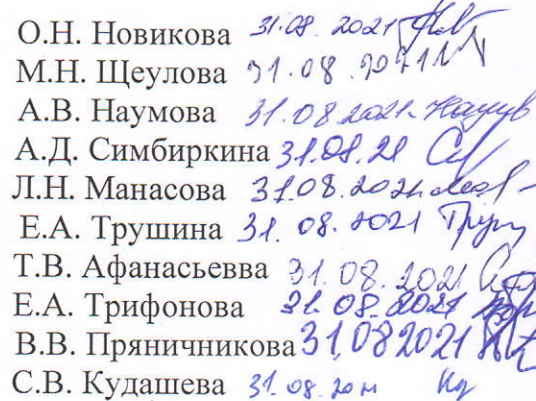 О.Н. Новикова 31.08.2021
М.Н. Щеулова 31.08.2021
А.В. Наумова 31.08.2021 Наум
А.Д. Симбиркина 31.08.21
Л.Н. Манасова 31.08.2021
Е.А. Трушина 31.08.2021
Т.В. Афанасьевва 31.08.2021
Е.А. Трифонова 31.08.2021
В.В. Пряничникова 31.08.2021
С.В. Кудашева 31.08.20